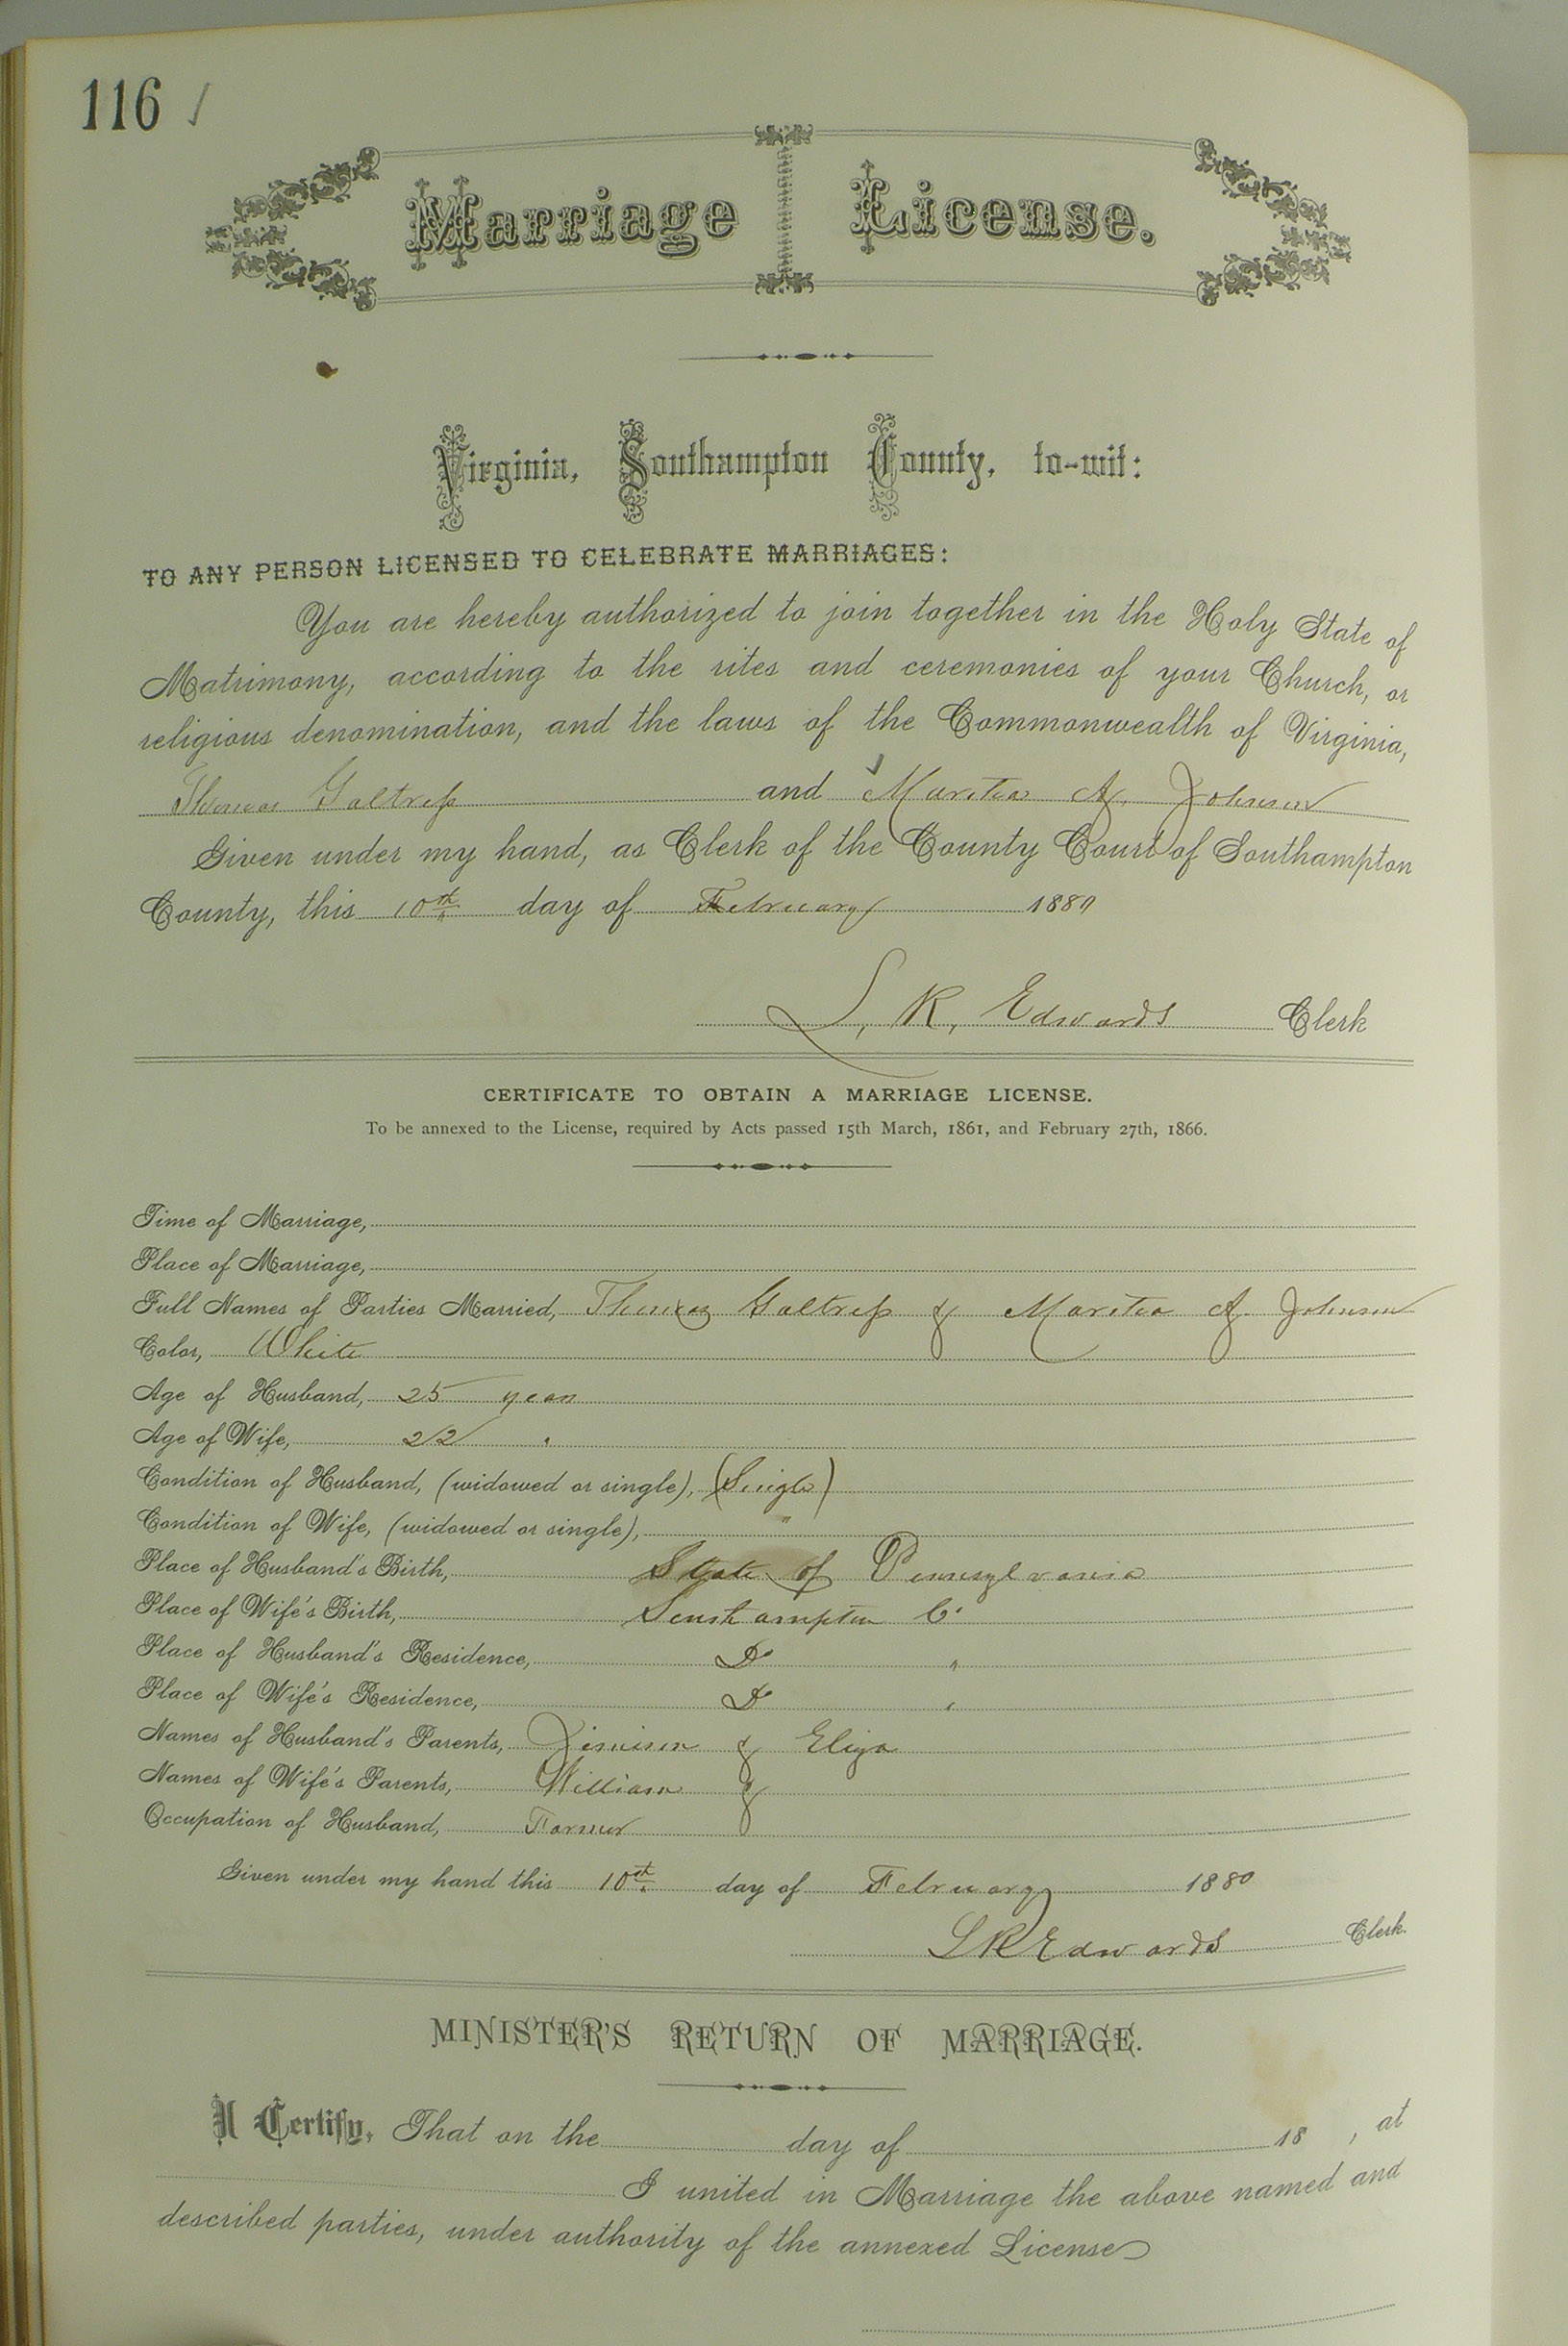 116 /
Marriage License.
Virginia, Southampton County, to-wit:
TO ANY PERSON LICENSED TO CELEBRATE MARRIAGES:
You are hereby authorized to join together in the Holy State of
Matrimony, according to the rites and ceremonies of your Church, or
religious denomination, and the laws of the Commonwealth of Virginia,
Thomas Galtress and Maritia A. Johnson
Given under my hand, as Clerk of the County Court of Southampton
County, this 10th day of February 1880
L. R. Edwards Clerk
CERTIFICATE TO OBTAIN A MARRIAGE LICENSE.
To be annexed to the License, required by Acts passed 15th March, 1861, and February 27th, 1866.
Time of Marriage,
Place of Marriage,
Full Names of Parties Married, Thomas Galtress & Maritia A. Johnson
Color, White
Age of Husband, 25 years
Age of Wife, 22 "
Condition of Husband, (widowed or single), (Single)
Condition of Wife, (widowed or single), "
Place of Husband's Birth, State of Pennsylvania
Place of Wife's Birth, Southampton Co.
Place of Husband's Residence, Do "
Place of Wife's Residence, Do "
Names of Husband's Parents, & Eliza
Names of Wife's Parents, William &
Occupation of Husband, Farmer
Given under my hand this 10th day of February 1880
L R Edwards Clerk.
MINISTER'S RETURN OF MARRIAGE.
I Certify, That on the day of 18 , at
I united in Marriage the above named and
described parties, under authority of the annexed License